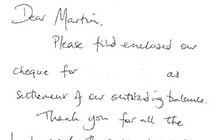 Dear Martin,
Please find enclosed our
cheque for as
settlement of our outstanding balance.
Thank you for all the